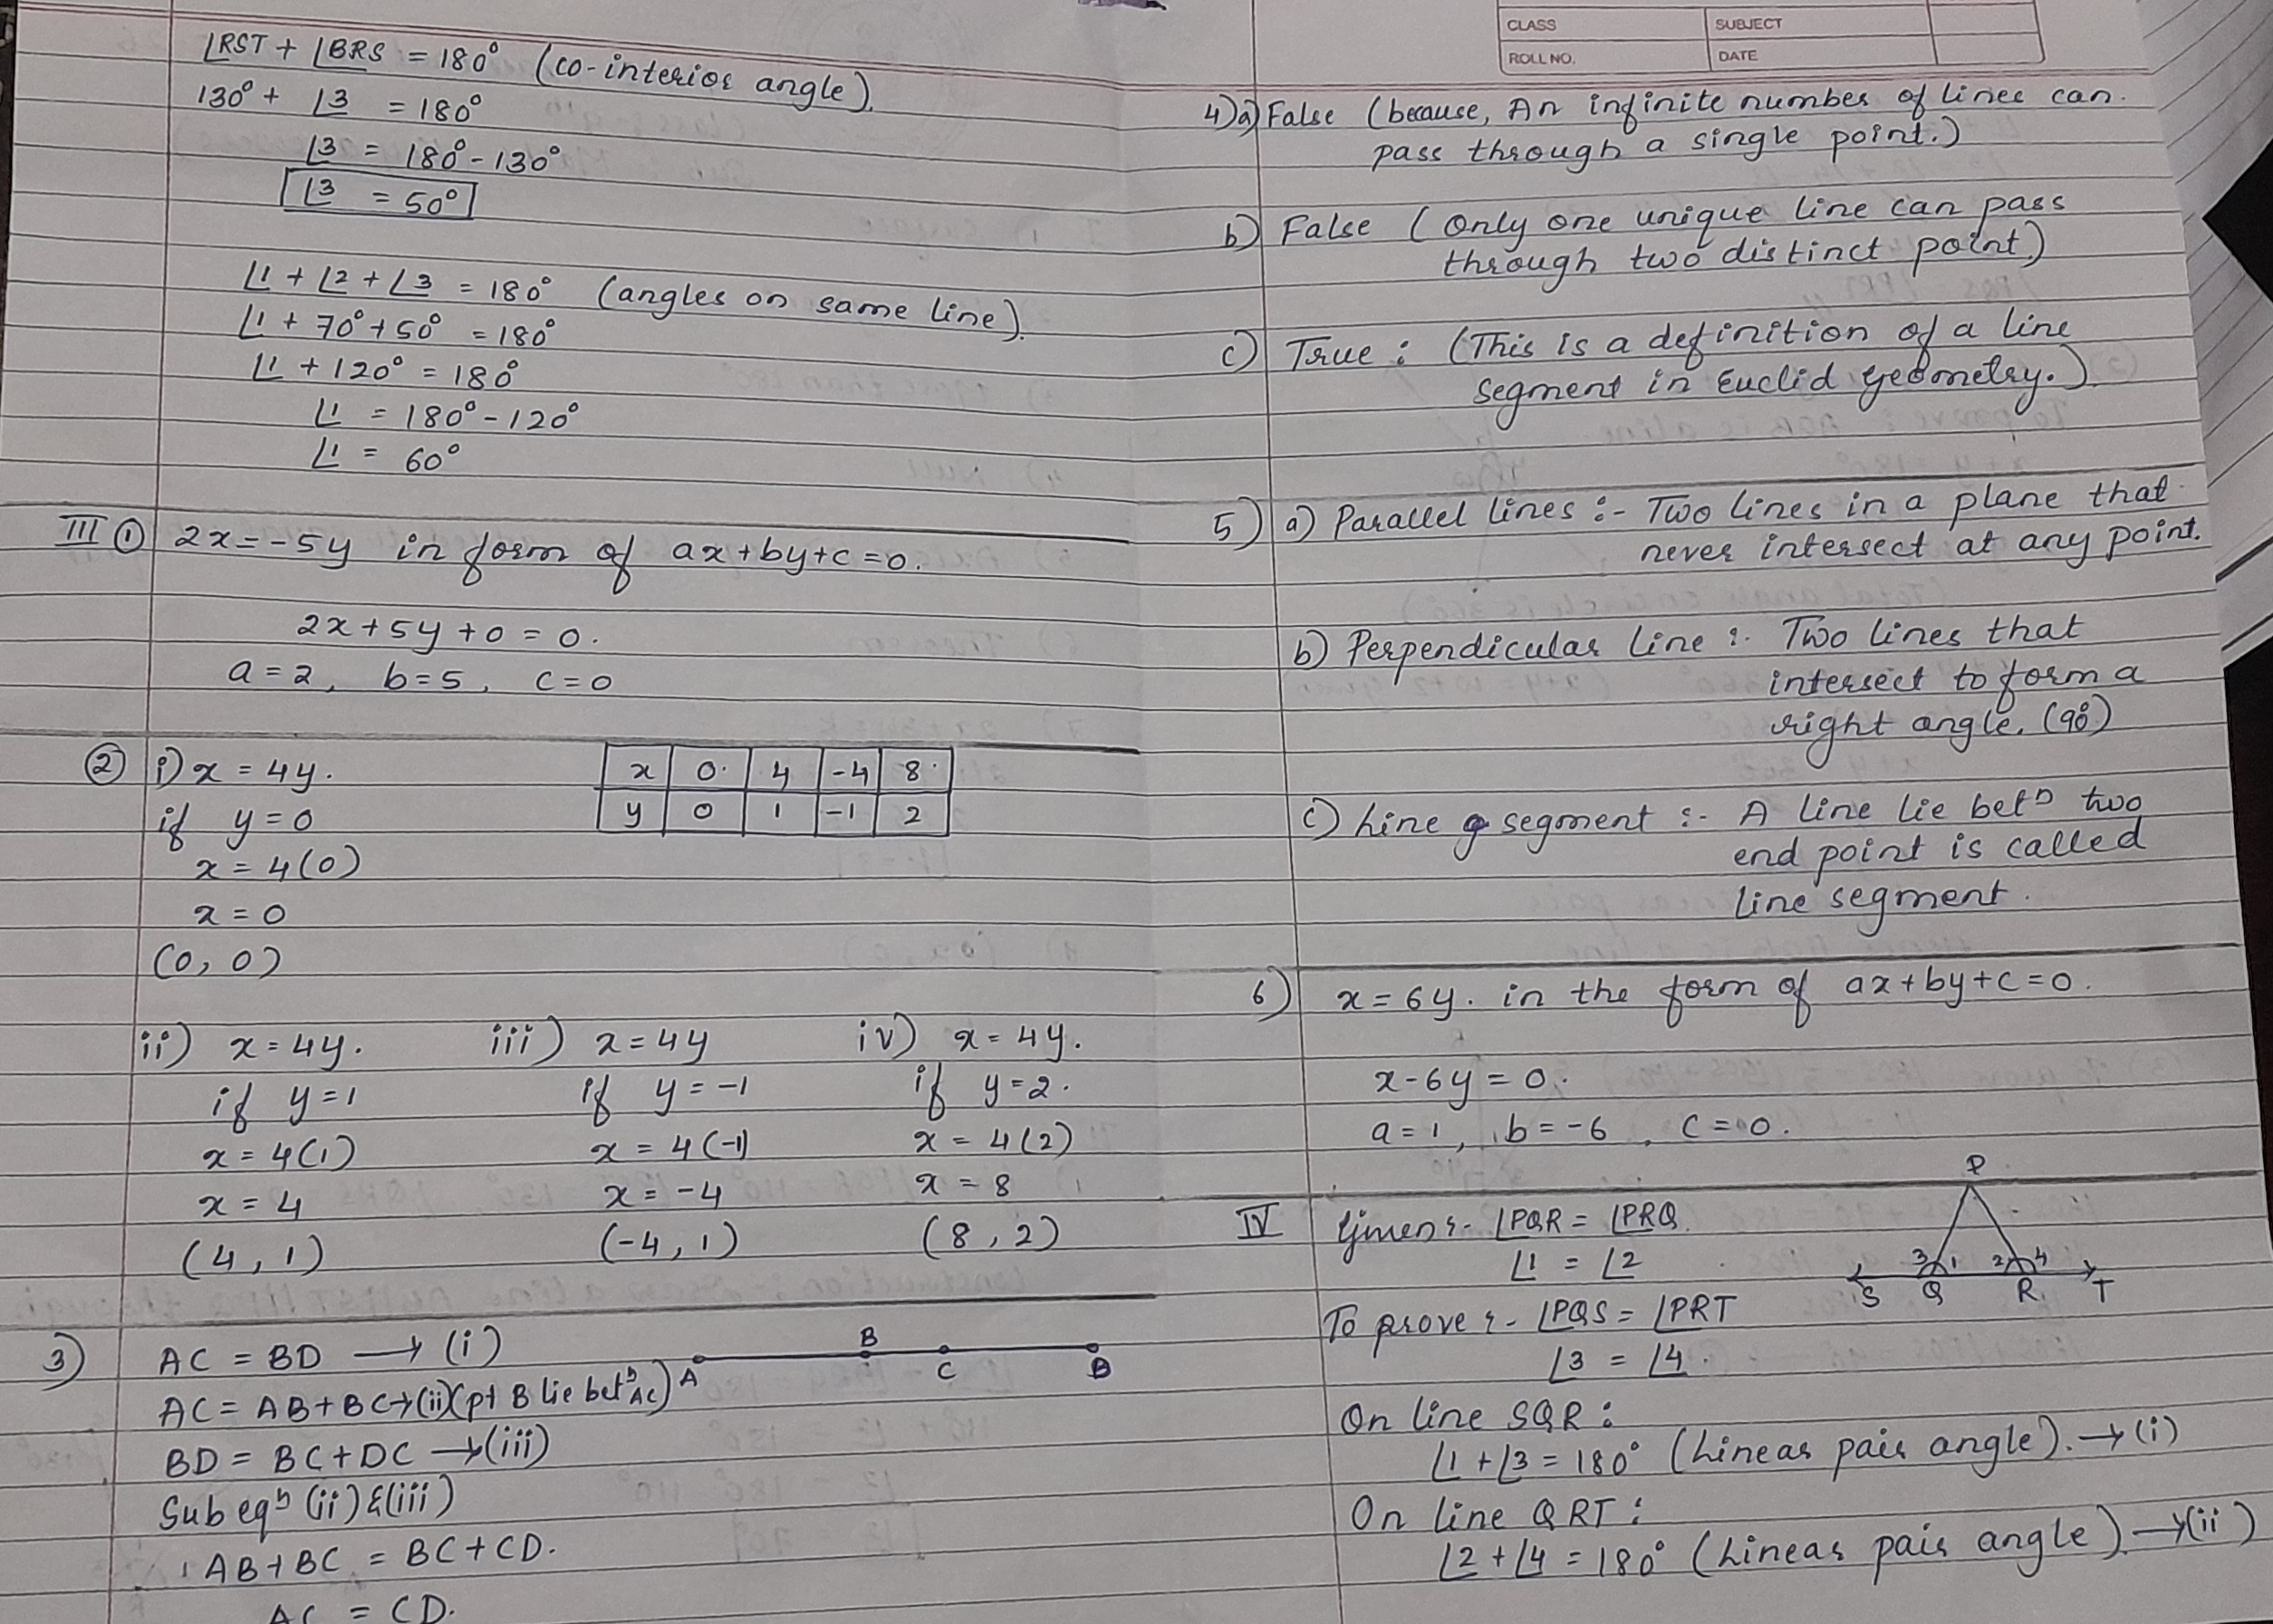 ∠RST + ∠BRS = 180° (co-interior angle).
130° + ∠3 = 180°
∠3 = 180° - 130°
∠3 = 50°
∠1 + ∠2 + ∠3 = 180° (angles on same line).
∠1 + 70° + 50° = 180°
∠1 + 120° = 180°
∠1 = 180° - 120°
∠1 = 60°
III ① 2x = -5y in form of ax+by+c=0.
2x+5y+0 = 0.
a = 2, b=5, c=0
② i) x = 4y.
x 0. 4 -4 8.
y 0 1 -1 2
if y=0
x = 4(0)
x = 0
(0, 0)
ii) x = 4y. iii) x = 4y iv) x = 4y.
if y=1 if y=-1 if y=2.
x = 4(1) x = 4(-1) x = 4(2)
x = 4 x = -4 x = 8
(4, 1) (-4, 1) (8, 2)
3) AC = BD → (i)
A B C B
AC = AB+BC→(ii)(pt B lie betⁿ AC)
BD = BC+DC →(iii)
Sub eqⁿ (ii)&(iii)
AB+BC = BC+CD.
AC = CD.
CLASS SUBJECT
ROLL NO. DATE
4) a) False (because, An infinite number of lines can.
pass through a single point.)
b) False (Only one unique line can pass
through two distinct point)
c) True : (This is a definition of a line
segment in Euclid geometry.)
5) a) Parallel lines :- Two lines in a plane that
never intersect at any point.
b) Perpendicular line :. Two lines that
intersect to form a
right angle. (90°)
c) Line segment :- A line lie betⁿ two
end point is called
line segment.
6) x = 6y. in the form of ax+by+c=0.
x-6y = 0.
a = 1, b = -6, c = 0.
IV Given :- ∠PQR = ∠PRQ.
∠1 = ∠2
P
3 1 2 4
S Q R. T
To prove :- ∠PQS = ∠PRT
∠3 = ∠4.
On line SQR :
∠1 + ∠3 = 180° (Linear pair angle). → (i)
On line QRT :
∠2 + ∠4 = 180° (Linear pair angle) → (ii)